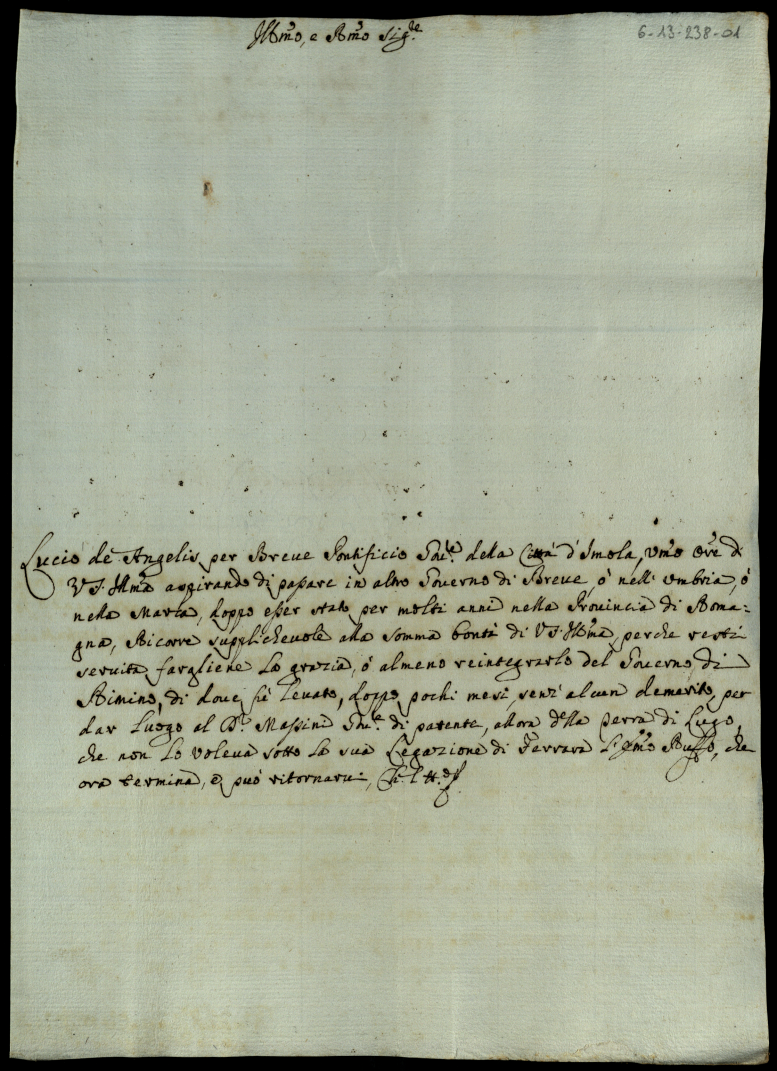 Illmo, e Rmo Sigre
6-13-238-01
Lucio de Angelis per Breve Pontificio Gore della Città d'Imola, Umo Ore di
VS. Illma aspirando di passare in altro Governo di Breve, ò nell'Umbria, ò
nella Marca, doppo esser stato per molti anni nella Provincia di Roma=
gna, Ricorre supplichevole alla somma bontà di VS. Illma, perche resti
servita fargliene la grazia, ò almeno reintegrarlo del Governo di
Rimino, di dove fù levato, doppo pochi mesi, senz'alcun demerito, per
dar luogo al Dr. Massini Gore di patente, allora della Terra di Lugo,
che non lo voleva sotto la sua Legazione di Ferrara l'Emo Ruffo, che
ora termina, e può ritornarvi,